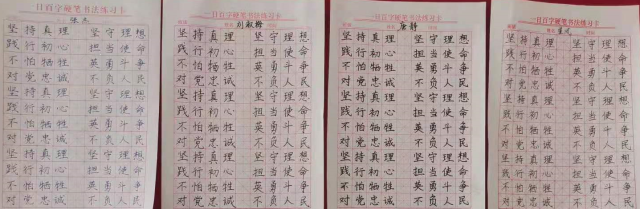 一日百字硬笔书法练习卡
坚持真理 坚守理想
践行初心 担当使命
不怕牺牲 英勇斗争
对党忠诚 不负人民
坚持真理 坚守理想
践行初心 担当使命
不怕牺牲 英勇斗争
对党忠诚 不负人民
坚持真理 坚守理想
践行初心 担当使命
不怕牺牲 英勇斗争
对党忠诚 不负人民
一日百字硬笔书法练习卡
坚持真理 坚守理想
践行初心 担当使命
不怕牺牲 英勇斗争
对党忠诚 不负人民
坚持真理 坚守理想
践行初心 担当使命
不怕牺牲 英勇斗争
对党忠诚 不负人民
坚持真理 坚守理想
践行初心 担当使命
不怕牺牲 英勇斗争
对党忠诚 不负人民
一日百字硬笔书法练习卡
唐静
坚持真理 坚守理想
践行初心 担当使命
不怕牺牲 英勇斗争
对党忠诚 不负人民
坚持真理 坚守理想
践行初心 担当使命
不怕牺牲 英勇斗争
对党忠诚 不负人民
坚持真理 坚守理想
践行初心 担当使命
不怕牺牲 英勇斗争
对党忠诚 不负人民
一日百字硬笔书法练习卡
坚持真理 坚守理想
践行初心 担当使命
不怕牺牲 英勇斗争
对党忠诚 不负人民
坚持真理 坚守理想
践行初心 担当使命
不怕牺牲 英勇斗争
对党忠诚 不负人民
坚持真理 坚守理想
践行初心 担当使命
不怕牺牲 英勇斗争
对党忠诚 不负人民